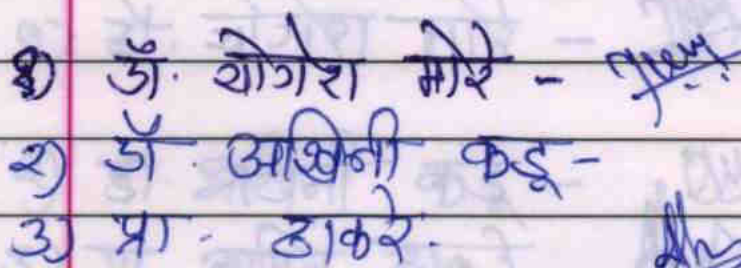 १) डॉ. योगेश मोरे -
२) डॉ. अश्विनी कडू -
३) प्रा. ठाकरे.